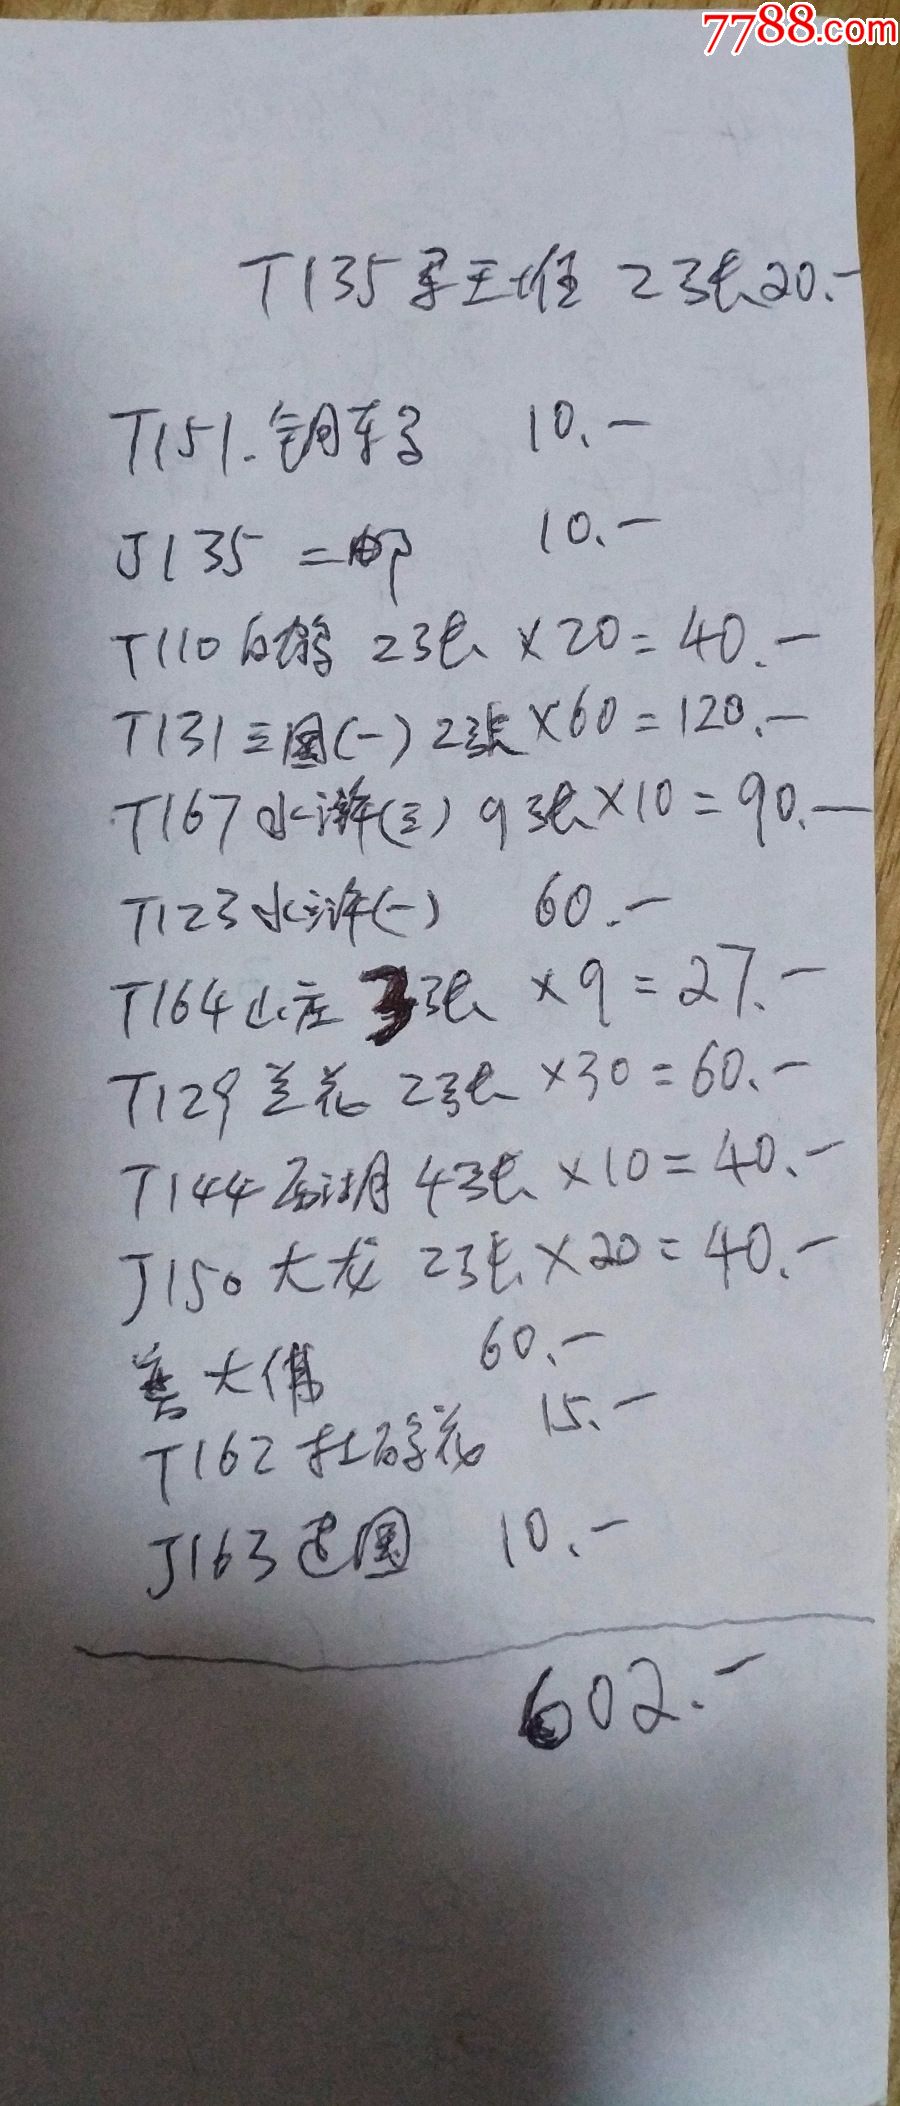 7788.com
T135马王堆 2张20.-
T151.铜车马 10.-
J135 二邮 10.-
T110白鹤 2张 ×20=40.-
T131三国(一) 2张×60=120.-
T167水浒(三) 9张×10=90.-
T123水浒(一) 60.-
T164山庄 3张 ×9=27.-
T129兰花 2张 ×30=60.-
T144西湖 4张 ×10=40.-
J150大龙 2张×20=40.-
大佛 60.-
T162杜鹃花 15.-
J163建国 10.-
602.-